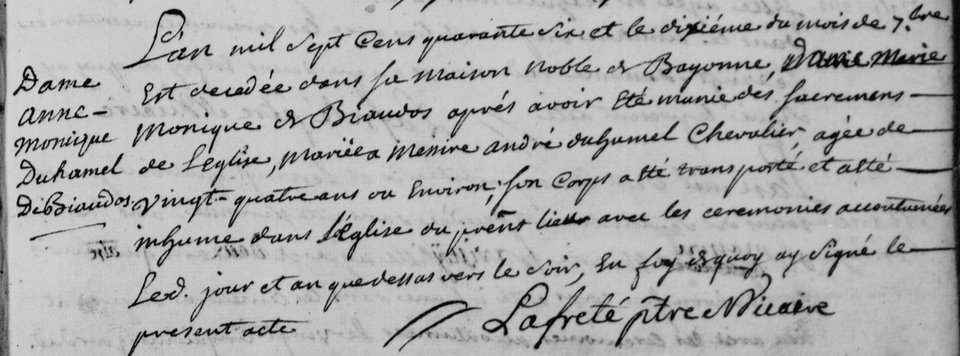 L'an mil sept cens quarante six et le dixiéme du mois de 7.bre
Dame
anne-
monique
Duhamel
De Biaudos
Est decedée dans sa maison noble de Bayonne, Dame Marie
Monique de Biaudos aprés avoir été munie des sacremens-
de L'eglise, mariée a Messire andré duhamel Chevalier, agée de
vingt-quatre ans ou Environ; son Corps a été transporté et a été
inhumé dans l'Eglise du pñt lieu avec les ceremonies accoutumées
Led. jour et an que dessus vers le soir, En foy de quoy ay signé le
present acte
Lafreté ptre Vicaire